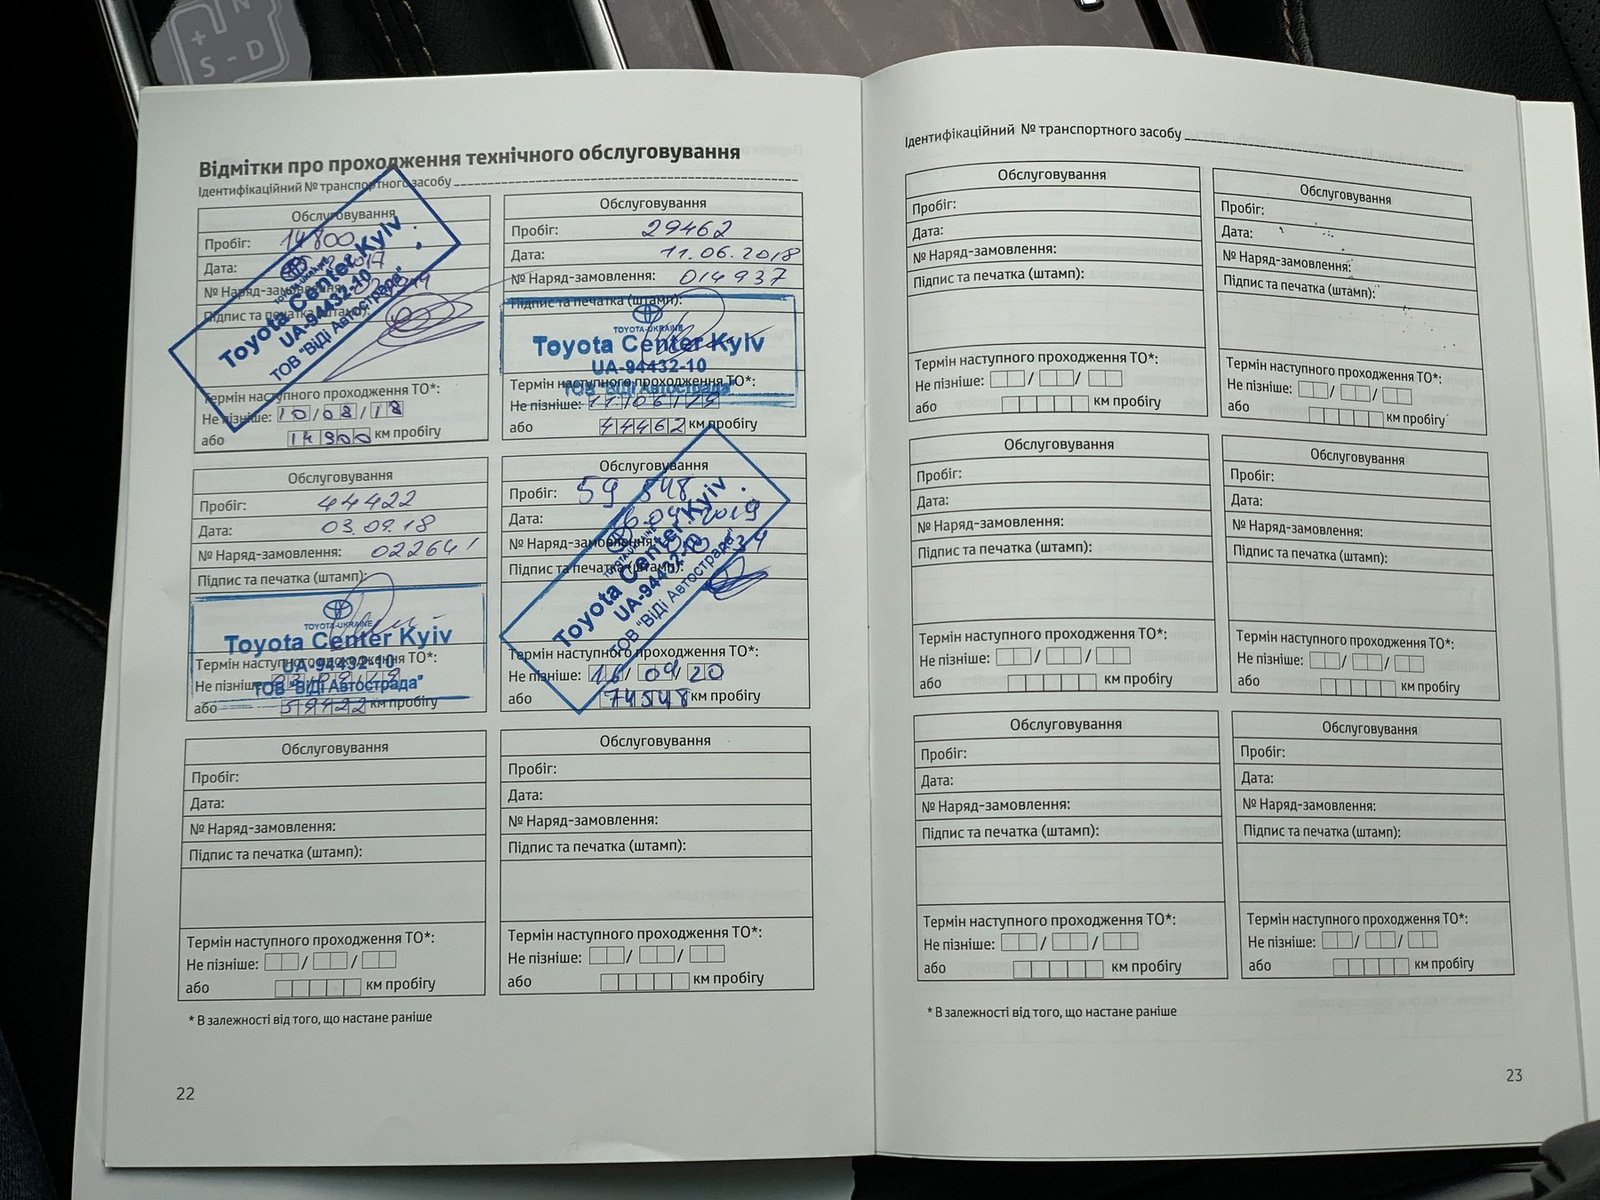 + N
S - D
Відмітки про проходження технічного обслуговування
Ідентифікаційний № транспортного засобу
Обслуговування
Пробіг: 14800
Дата:
№ Наряд-замовлення:
Підпис та печатка (штамп):
TOYOTA-UKRAINE
Toyota Center Kyiv
UA-94432-10
ТОВ "ВіДі Автострада"
Термін наступного проходження ТО*:
Не пізніше: 10/08/18
або км пробігу
Обслуговування
Пробіг: 29462
Дата: 11.06.2018
№ Наряд-замовлення: 014937
Підпис та печатка (штамп):
TOYOTA-UKRAINE
Toyota Center Kyiv
UA-94432-10
ТОВ "ВіДі Автострада"
Термін наступного проходження ТО*:
Не пізніше: 11/06/19
або 44462 км пробігу
Обслуговування
Пробіг: 44422
Дата: 03.09.18
№ Наряд-замовлення: 022641
Підпис та печатка (штамп):
TOYOTA-UKRAINE
Toyota Center Kyiv
UA-94432-10
ТОВ "ВіДі Автострада"
Термін наступного проходження ТО*:
Не пізніше: 03/09/19
або 59422 км пробігу
Обслуговування
Пробіг: 59 548
Дата: 16.04.2019
№ Наряд-замовлення:
Підпис та печатка (штамп):
TOYOTA-UKRAINE
Toyota Center Kyiv
UA-94432-10
ТОВ "ВіДі Автострада"
Термін наступного проходження ТО*:
Не пізніше: 16/04/20
або 74548 км пробігу
Обслуговування
Пробіг:
Дата:
№ Наряд-замовлення:
Підпис та печатка (штамп):
Термін наступного проходження ТО*:
Не пізніше: / /
або км пробігу
Обслуговування
Пробіг:
Дата:
№ Наряд-замовлення:
Підпис та печатка (штамп):
Термін наступного проходження ТО*:
Не пізніше: / /
або км пробігу
* В залежності від того, що настане раніше
22
Ідентифікаційний № транспортного засобу
Обслуговування
Пробіг:
Дата:
№ Наряд-замовлення:
Підпис та печатка (штамп):
Термін наступного проходження ТО*:
Не пізніше: / /
або км пробігу
Обслуговування
Пробіг:
Дата:
№ Наряд-замовлення:
Підпис та печатка (штамп):
Термін наступного проходження ТО*:
Не пізніше: / /
або км пробігу
Обслуговування
Пробіг:
Дата:
№ Наряд-замовлення:
Підпис та печатка (штамп):
Термін наступного проходження ТО*:
Не пізніше: / /
або км пробігу
Обслуговування
Пробіг:
Дата:
№ Наряд-замовлення:
Підпис та печатка (штамп):
Термін наступного проходження ТО*:
Не пізніше: / /
або км пробігу
Обслуговування
Пробіг:
Дата:
№ Наряд-замовлення:
Підпис та печатка (штамп):
Термін наступного проходження ТО*:
Не пізніше: / /
або км пробігу
Обслуговування
Пробіг:
Дата:
№ Наряд-замовлення:
Підпис та печатка (штамп):
Термін наступного проходження ТО*:
Не пізніше: / /
або км пробігу
* В залежності від того, що настане раніше
23